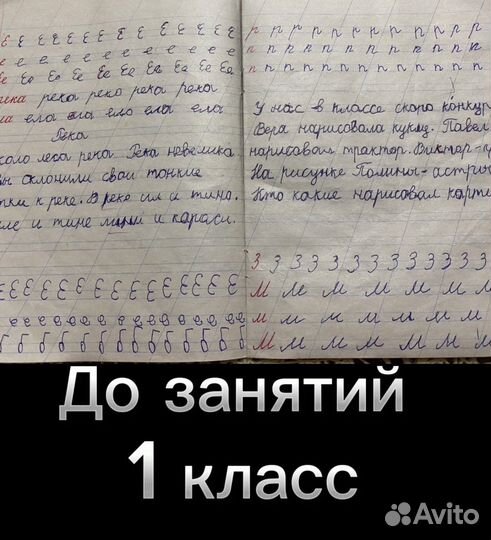 Е Е Е Е Е Е Е Е Е Е Е
е е е е е е е е е е
Ее Ее Ее Ее Ее Ее Ее Ее Ее
река реко река река
ела ела ело ела ела
Река
коло леса река. Река невелика.
склонили свои тонкие
тки к реке. В реке ил и тина.
иле и тине лини и караси.
Е Е Е Е Е Е Е Е Е Е Е Е Е
в в в в в в в в в в в
б б б б б б б б б б б б б
р п п п п п п п р р р
п п п п п п п п п п п
п п п п п п п п п п п п
У нас в классе скоро конкур
Вера нарисовала куклу. Павел
нарисовал трактор. Виктор-
На рисунке Полины-астры
Кто какие нарисовал карти
З З З З З З З З З З З З
М м м м м м м
м м м м м м м
М м м м м м м
До занятий
1 класс
Avito